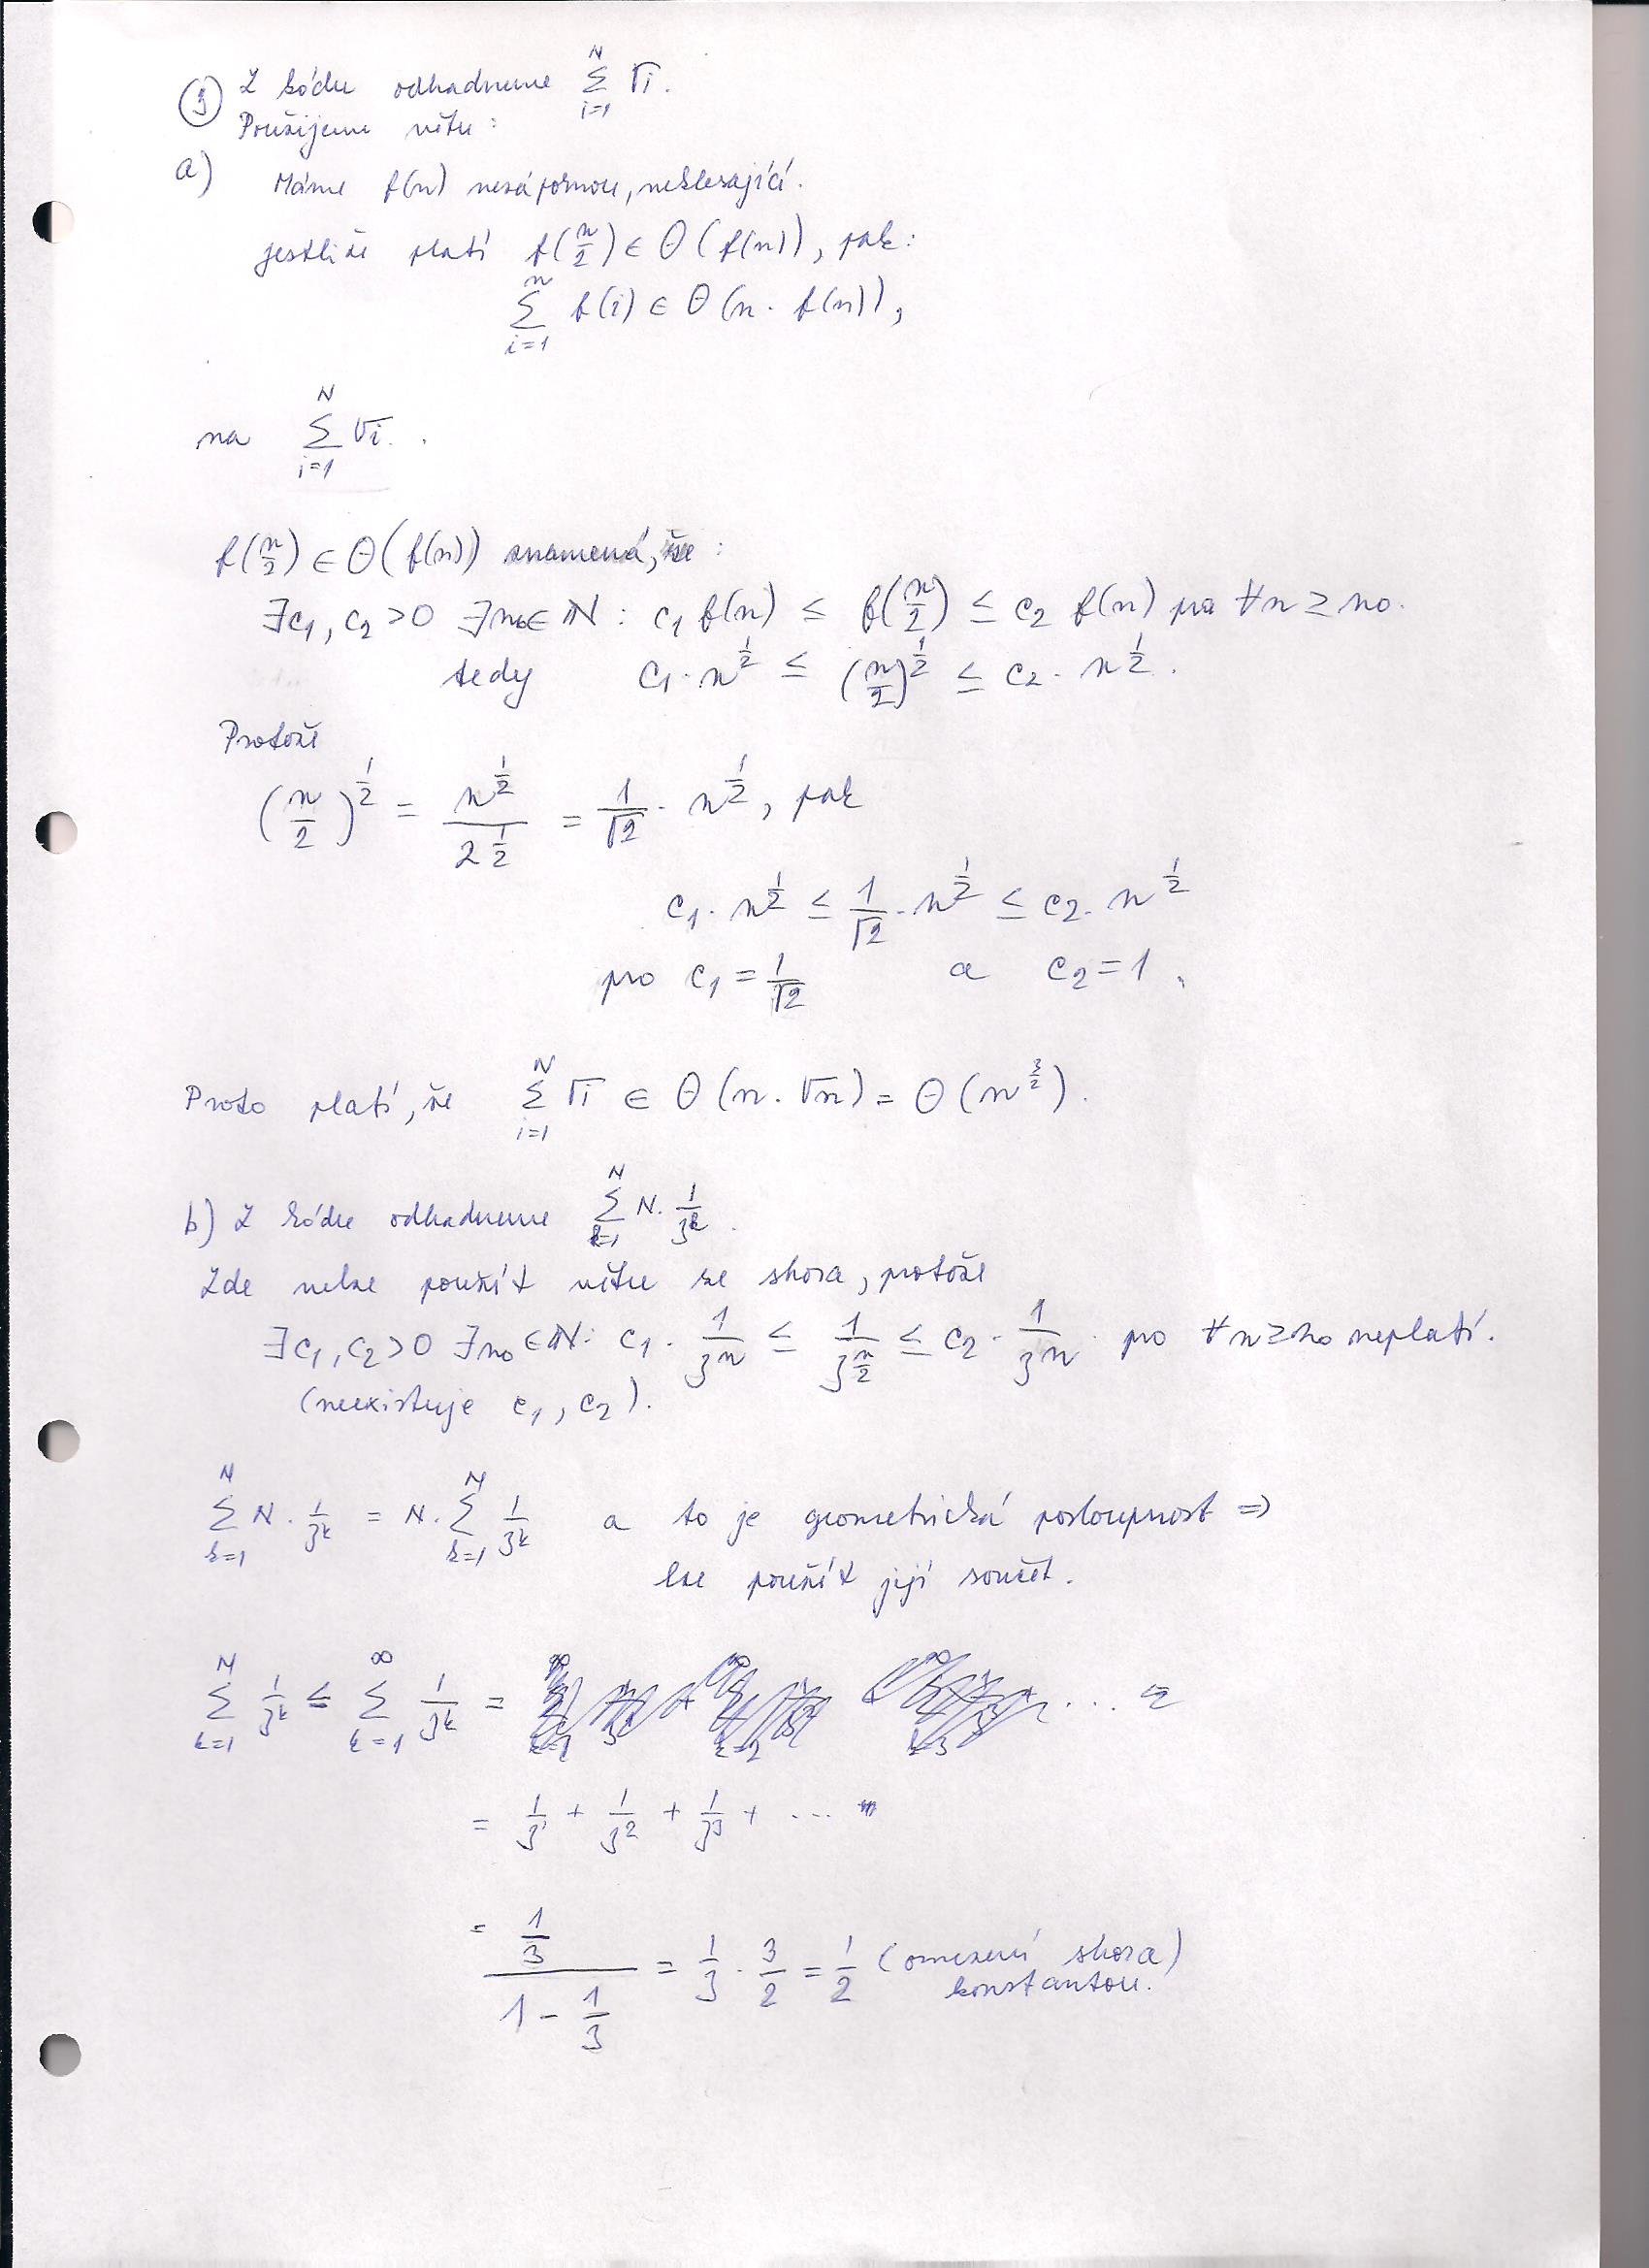 ③ Z kódu odhadneme $\sum_{i=1}^{N} \sqrt{i}$.
Použijeme větu:
a) Máme f(n) nezápornou, neklesající.
jestliže platí $f(\frac{n}{2}) \in \Theta(f(n))$, pak:
$\sum_{i=1}^{n} f(i) \in \Theta(n \cdot f(n))$,
na $\sum_{i=1}^{N} \sqrt{i}$.
$f(\frac{n}{2}) \in \Theta(f(n))$ znamená, že:
$\exists c_1, c_2 > 0 \; \exists n_0 \in \mathbb{N} : c_1 f(n) \leq f(\frac{n}{2}) \leq c_2 f(n)$ pro $\forall n \geq n_0$.
tedy $c_1 \cdot n^{\frac{1}{2}} \leq (\frac{n}{2})^{\frac{1}{2}} \leq c_2 \cdot n^{\frac{1}{2}}$.
Protože
$(\frac{n}{2})^{\frac{1}{2}} = \frac{n^{\frac{1}{2}}}{2^{\frac{1}{2}}} = \frac{1}{\sqrt{2}} \cdot n^{\frac{1}{2}}$, pak
$c_1 \cdot n^{\frac{1}{2}} \leq \frac{1}{\sqrt{2}} \cdot n^{\frac{1}{2}} \leq c_2 \cdot n^{\frac{1}{2}}$
pro $c_1 = \frac{1}{\sqrt{2}}$ a $c_2 = 1$.
Proto platí, že $\sum_{i=1}^{N} \sqrt{i} \in \Theta(n \cdot \sqrt{n}) = \Theta(n^{\frac{3}{2}})$.
b) Z kódu odhadneme $\sum_{k=1}^{N} N \cdot \frac{1}{3^k}$.
Zde nelze použít větu ze shora, protože
$\exists c_1, c_2 > 0 \; \exists n_0 \in \mathbb{N} : c_1 \cdot \frac{1}{3^n} \leq \frac{1}{3^{\frac{n}{2}}} \leq c_2 \cdot \frac{1}{3^n}$ pro $\forall n \geq n_0$ neplatí.
(neexistuje $c_1, c_2$).
$\sum_{k=1}^{N} N \cdot \frac{1}{3^k} = N \cdot \sum_{k=1}^{N} \frac{1}{3^k}$ a to je geometrická posloupnost ⇒
lze použít její součet.
$\sum_{k=1}^{N} \frac{1}{3^k} \leq \sum_{k=1}^{\infty} \frac{1}{3^k} =$ ... =
$= \frac{1}{3^1} + \frac{1}{3^2} + \frac{1}{3^3} + \cdots$
$= \frac{\frac{1}{3}}{1 - \frac{1}{3}} = \frac{1}{3} \cdot \frac{3}{2} = \frac{1}{2}$ (omezení shora)
konstantou.